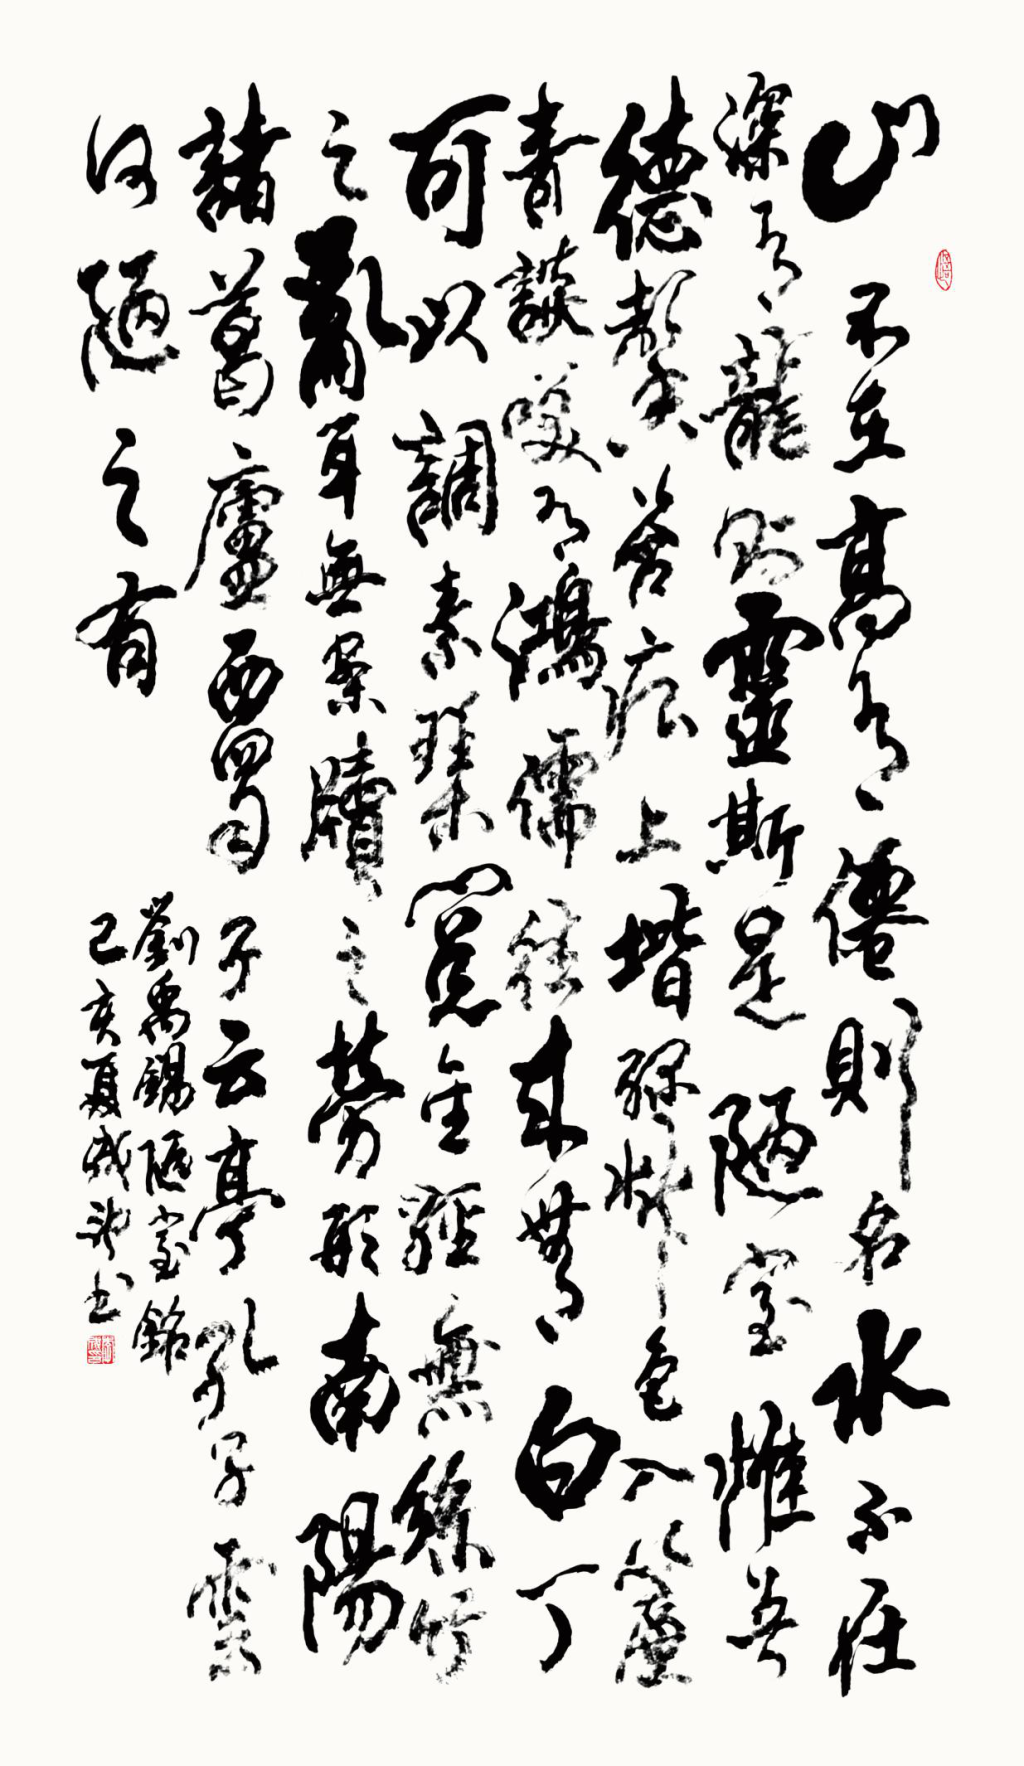 山不在高有僊則名水不在
深有龍則靈斯是陋室惟吾
德馨苔痕上堦綠艸色入簾
青談咲有鴻儒往來無白丁
可以調素琴閱金經無絲竹
之亂耳無案牘之勞形南陽
諸葛廬西蜀子云亭孔子雲
何陋之有
劉禹錫陋室銘
己亥夏成書